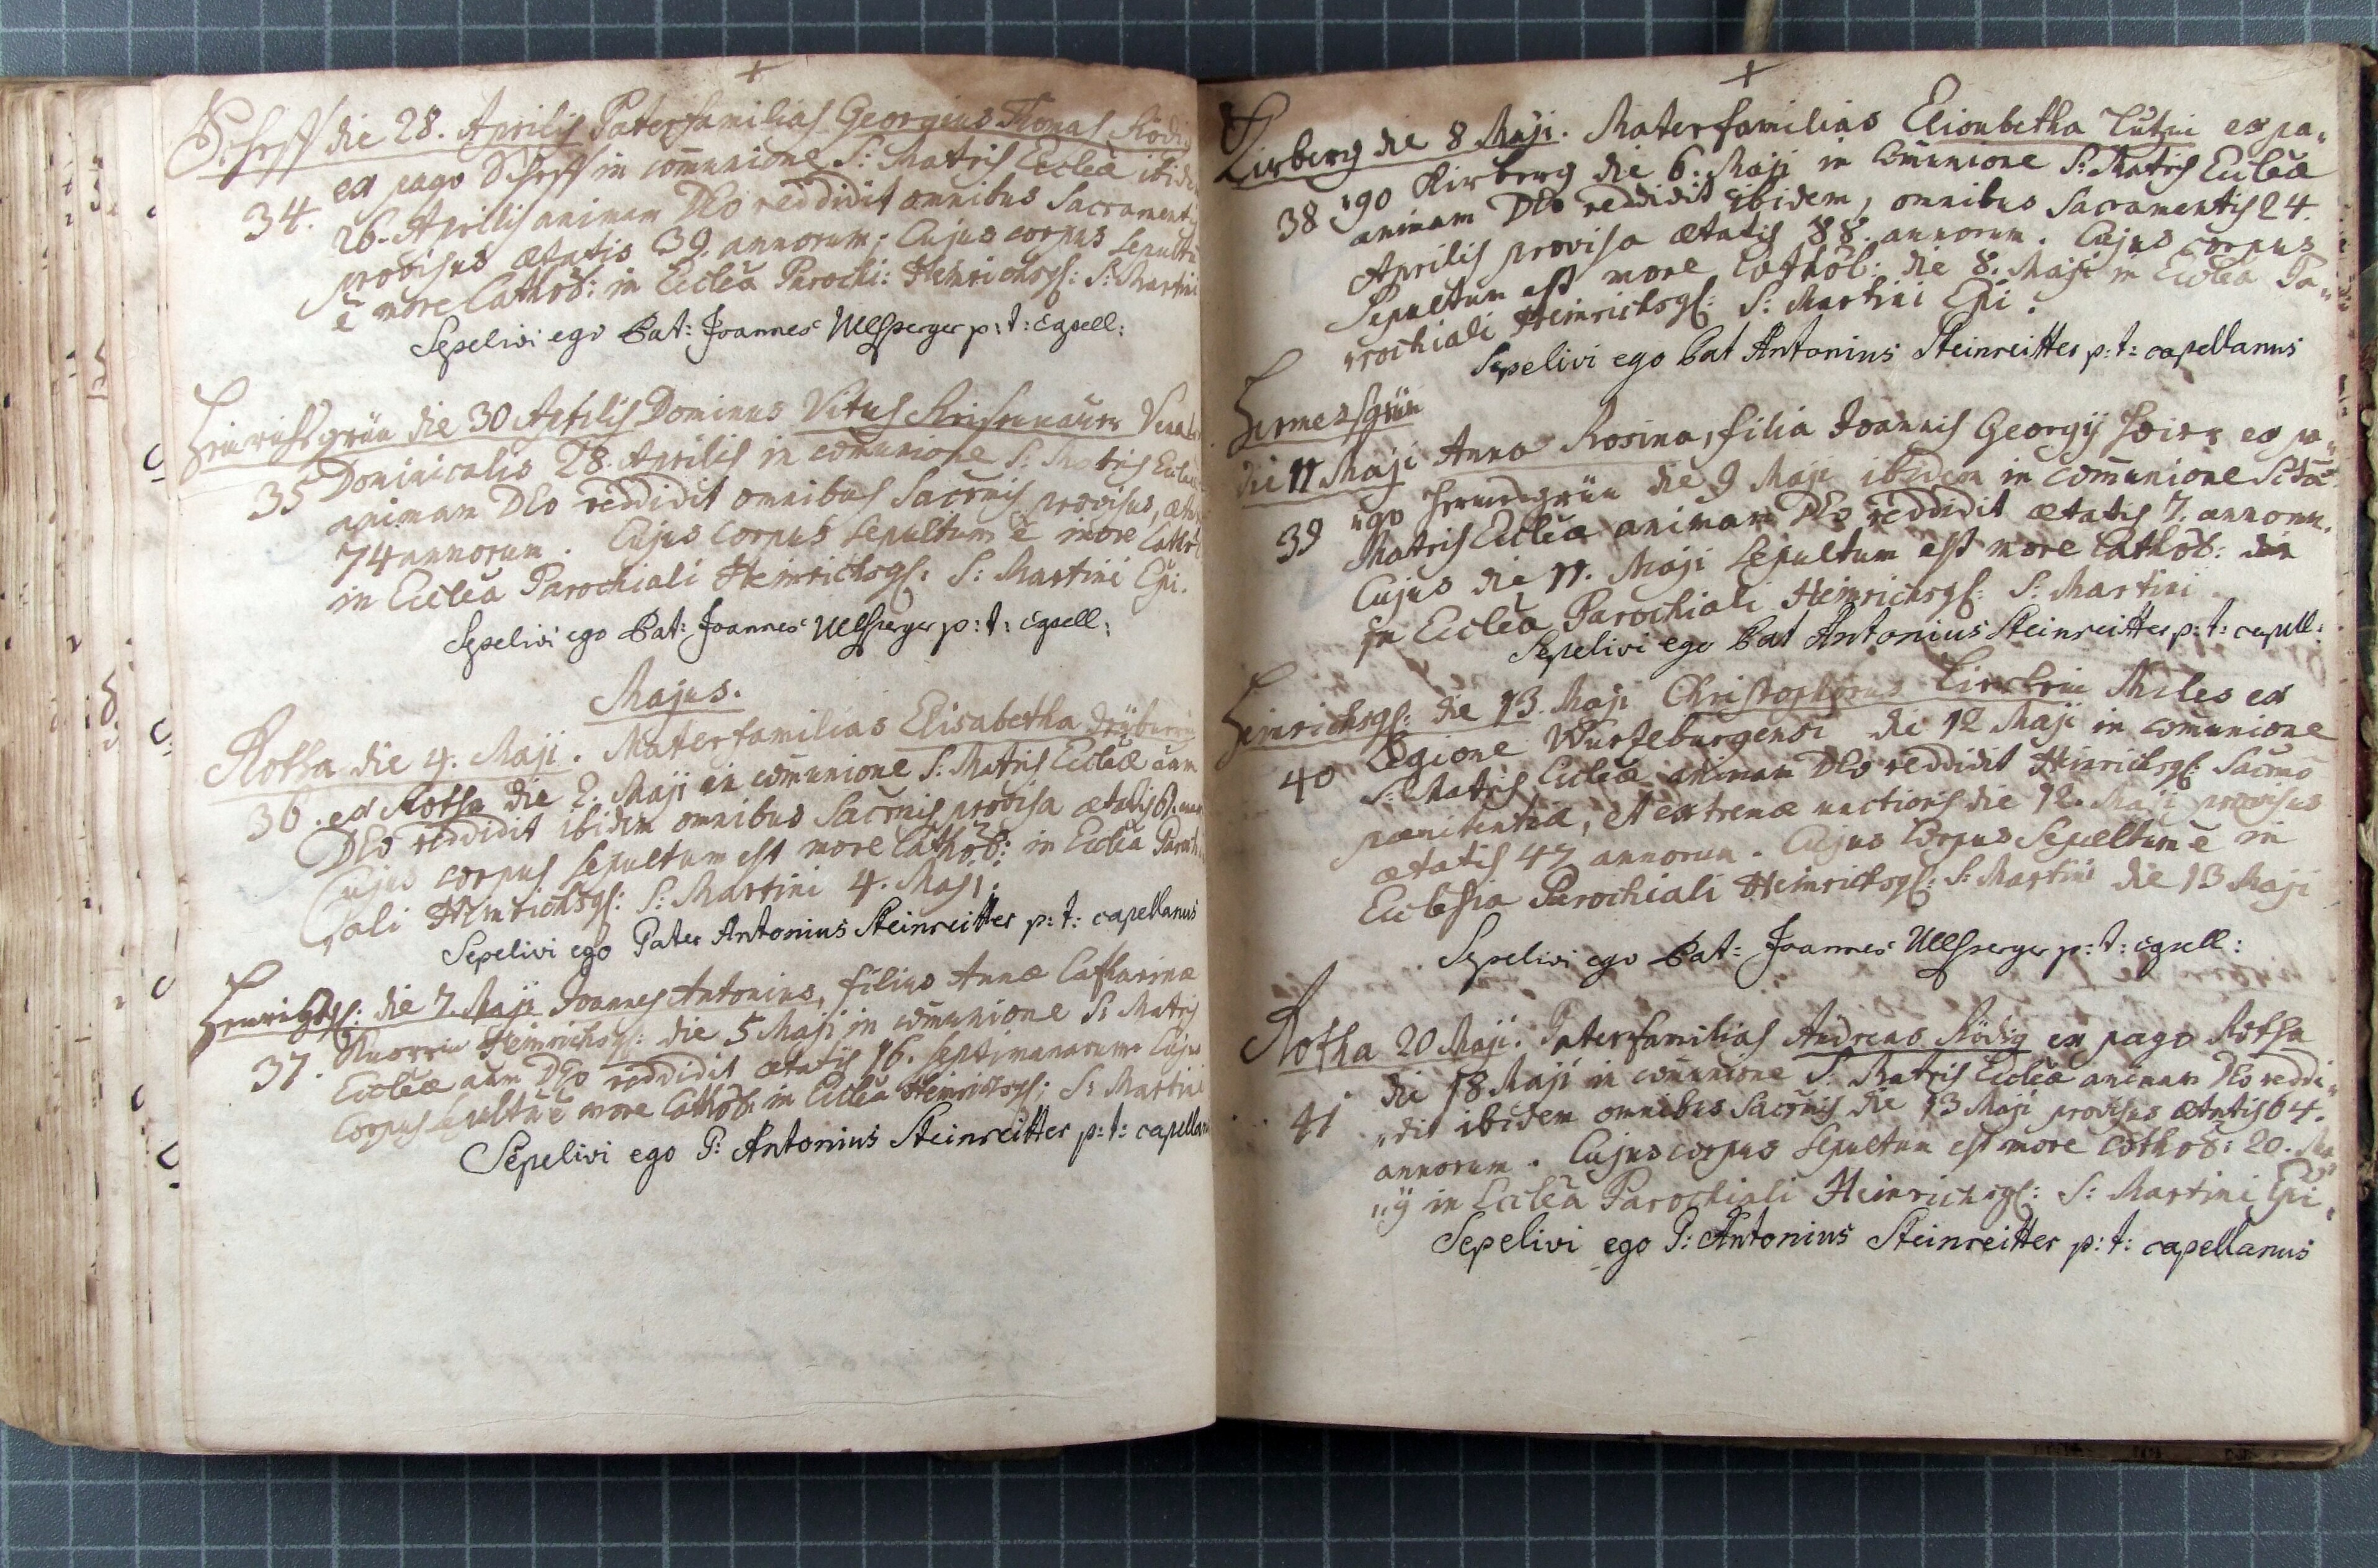 +
die 28. Aprilis Paterfamilias Georgius Thomas
34. ex pago in com̄unione S: Matris Eccleæ
26. Aprilis animam DEo reddidit omnibus Sacramentis
provisus ætatis 39. annorum; Cujus corpus
ē more Cathol: in Ecclea Parochi: Heinrichsgl: S: Martini
Sepelivi ego Pat: Joannes p: t: Capell:
Heinrichsgrün die 30 Aprilis Dominus Vitus
35 Dominicalis 28. Aprilis in com̄unione S: Matris
animam DEo reddidit omnibus Sacrnis provisus,
74 annorum. Cujus corpus sepultum ē more
in Ecclea Parochiali Heinrichsgl: S: Martini Epi.
Sepelivi ego Pat: Joannes p: t: Capell:
Majus.
Rotha die 4. Maji. Materfamilias Elisabetha
36. ex Rotha die 2. Maji in com̄unione S: Matris Eccleæ
DEo reddidit ibidem omnibus Sacrnis provisa ætatis
Cujus corpus sepultum est more Cathol: in Ecclea
Heinrichsgl: S: Martini 4. Maji.
Sepelivi ego Pater Antonius Steinreitter p: t: capellanus
die 7. Maji Joannes Antonius, filius Annæ Catharinæ
37. Heinrichsgl: die 5 Maji in com̄unione S: Matris
Eccleæ DEo reddidit ætatis 16. septimanarum
Corpus more Cathol: in Ecclea Heinrichsgl: S: Martini
Sepelivi ego P: Antonius Steinreitter p: t:
+
Kirberg die 8 Maji. Materfamilias ex pa„
38 „go Kirberg die 6. Maji in Com̄unione S: Matris Eccleæ
animam DEo reddidit ibidem, omnibus Sacramentis 24.
Aprilis provisa ætatis 88. annorum. Cujus corpus
Sepultum est more Cathol: die 8. Maji in Ecclea Pa„
„rochiali Heinrichsgl: S: Martini Epi.
Sepelivi ego Pat Antonius Steinreitter p: t: capellanus
Hermesgrün
die 11 Maji Anna Rosina, filia Joannis Georgij ex pa„
39 „go die 9 Maji ibidem in Com̄unione
Matris Eccleæ animam DEo reddidit ætatis 7. annorum.
Cujus die 11. Maji sepultum est more Cathol:
in Ecclea Parochiali Heinrichsgl: S: Martini
Sepelivi ego Pat Antonius Steinreitter p: t: capell:
Heinrichsgl: die 13. Maji Christophorus Miles ex
40 Legione Wurtzeburgensi die 12 Maji in com̄unione
S: Matris Eccleæ animam DEo reddidit Heinrichsgl:
pænitentiæ, et extremæ unctionis die 12. Maji provisus
ætatis 47 annorum. Cujus Corpus Sepultum ē in
Ecclesia Parochiali Heinrichsgl: S: Martini die 13 Maji
Sepelivi ego Pat: Joannes p: t: Capell:
Rotha 20 Maji. Paterfamilias Andreas Rödig ex pago Rotha
41 die 18 Maji in com̄unione S: Matris Eccleæ animam DEo reddi„
„dit ibidem omnibus Sacrnis die 13 Maji provisus ætatis 64.
annorum. Cujus corpus sepultum est more Cathol: 20. Ma„
„ij in Ecclea Parochiali Heinrichsgl: S: Martini Epi
Sepelivi ego P: Antonius Steinreitter p: t: capellanus